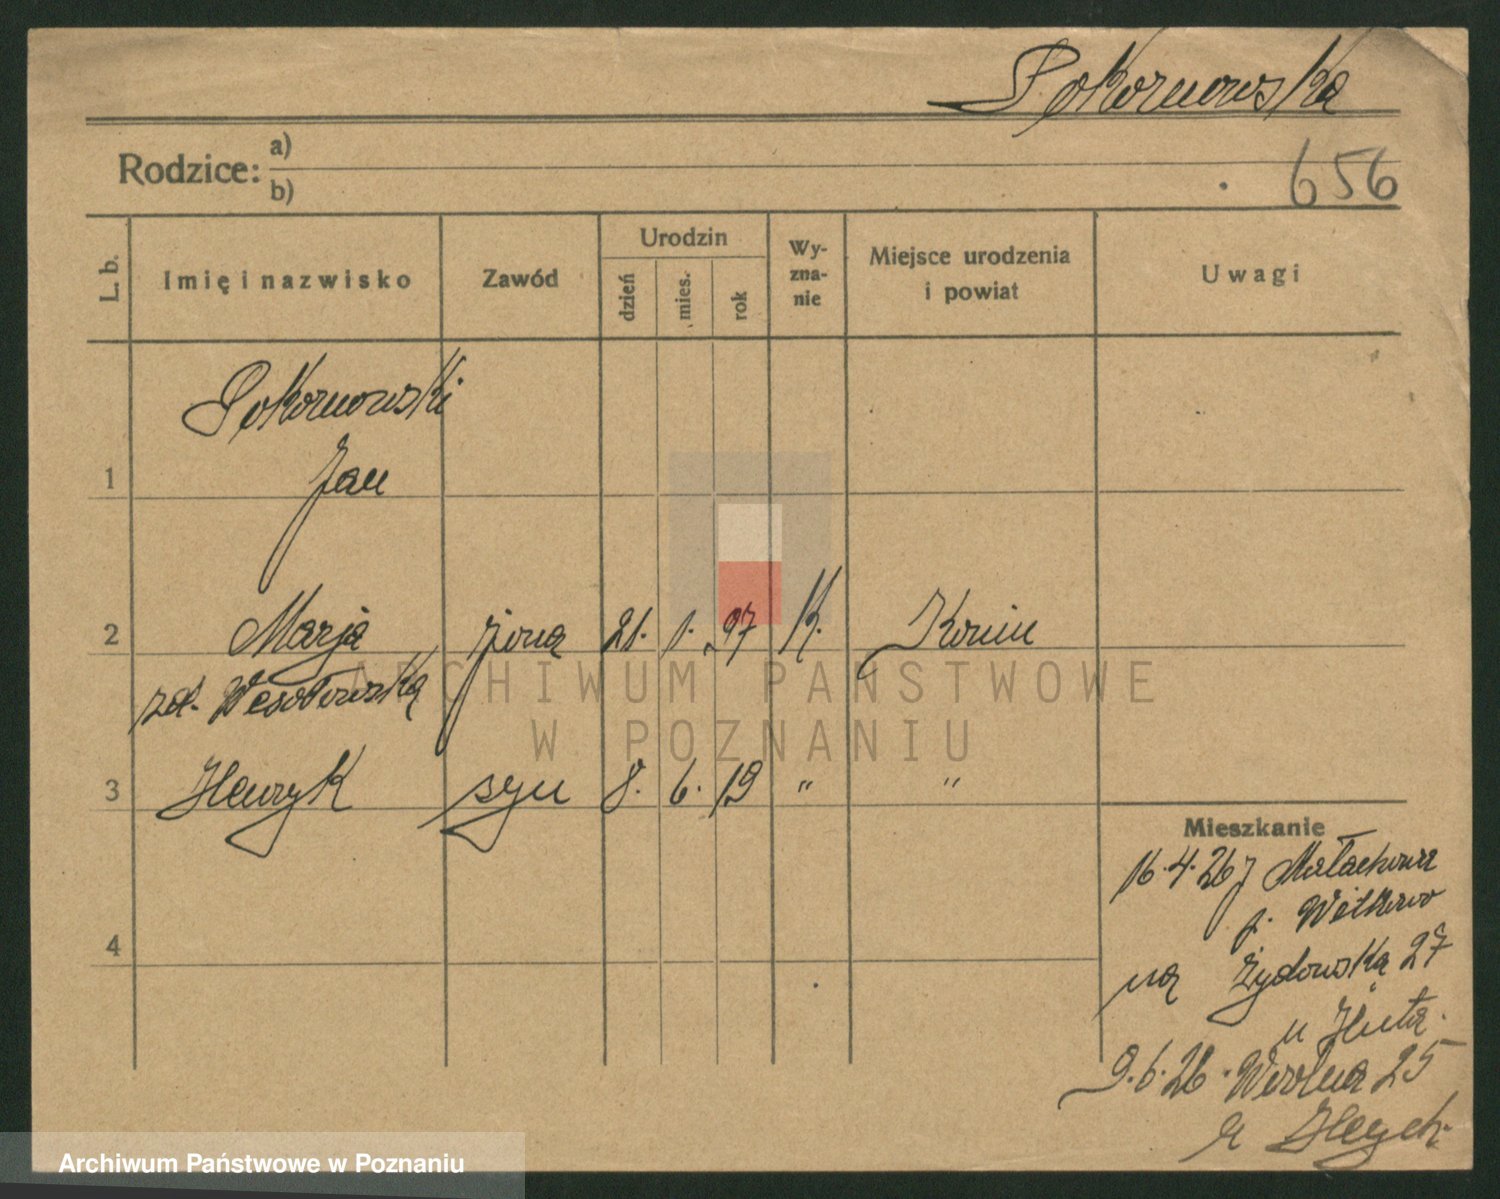 Pokornowska
Rodzice: a)
b)
656
L. b.
Imię i nazwisko
Zawód
Urodzin
dzień
mies.
rok
Wy-
zna-
nie
Miejsce urodzenia
i powiat
Uwagi
Pokornowski
1 Jan
2 Marja żona 21. 1. 97 k. Konin
zd. Wesołowska
3 Henryk syn 8. 6. 19 " "
Mieszkanie
16.4.26 z Małachowa
p. Witkowo
4
na Żydowską 27
u Huta.
9.6.26. Wolna 25
u
ARCHIWUM PAŃSTWOWE
W POZNANIU
Archiwum Państwowe w Poznaniu